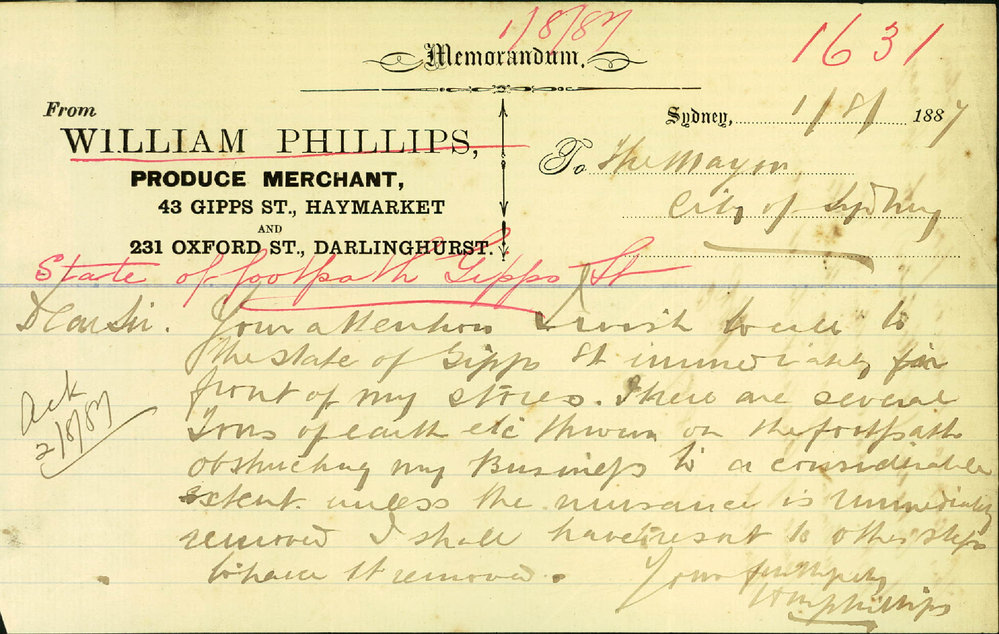 1/8/87
1631
Memorandum.
From
WILLIAM PHILLIPS,
PRODUCE MERCHANT,
43 GIPPS ST., HAYMARKET
AND
231 OXFORD ST., DARLINGHURST.
Sydney, 1/8/ 1887
To The Mayor
City of Sydney
State of footpath Gipps St
Dear Sir. Your attention I wish to call to
the state of Gipps St immediately in
front of my stores. There are several
Tons of earth etc thrown on the footpath
obstructing my Business to a considerable
extent. unless the nuisance is immediately
removed I shall have resort to other steps
to have it removed.
Yours
Wm Phillips
Ack
2/8/87